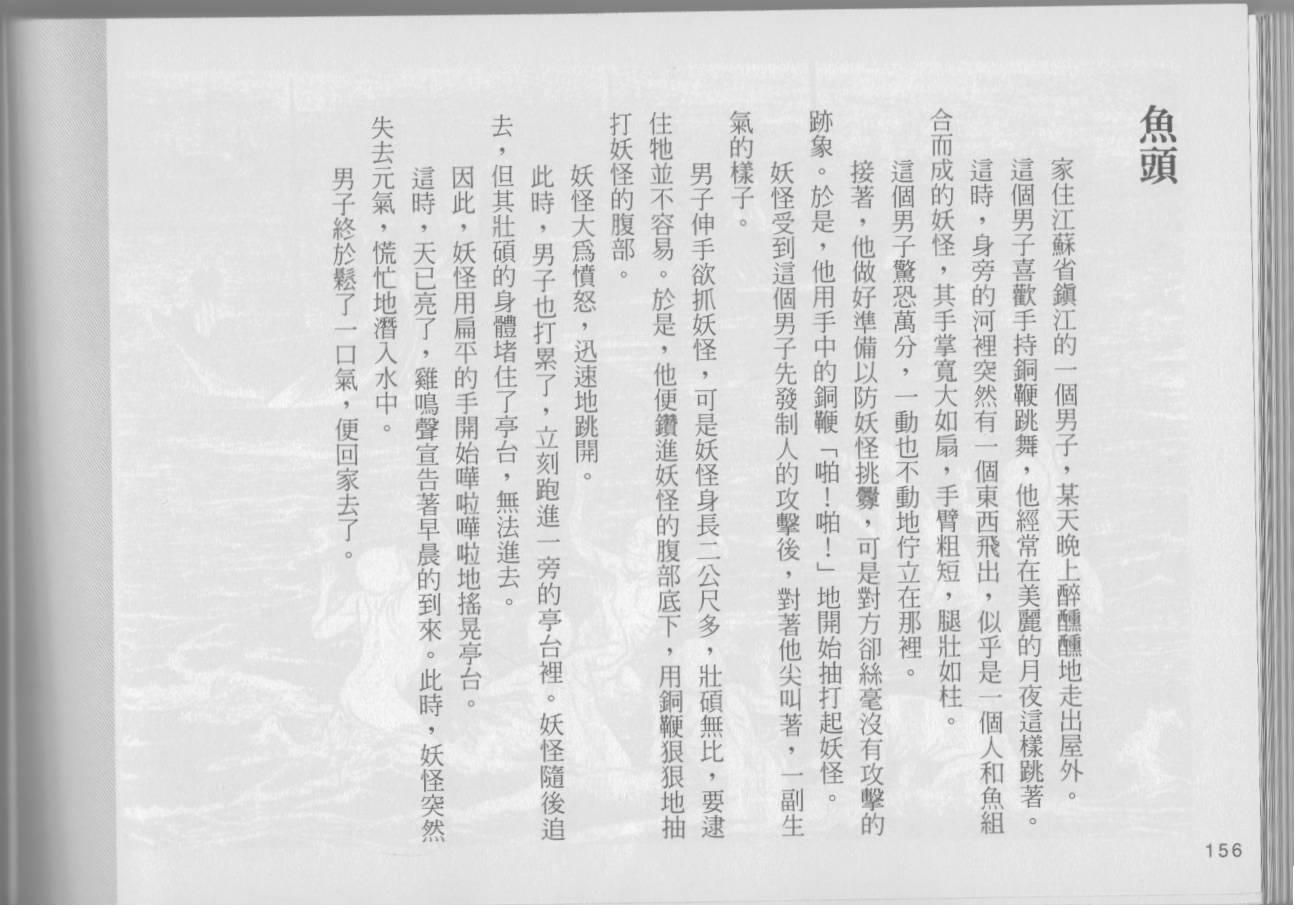 魚頭
家住江蘇省鎮江的一個男子，某天晚上醉醺醺地走出屋外。
這個男子喜歡手持銅鞭跳舞，他經常在美麗的月夜這樣跳著。
這時，身旁的河裡突然有一個東西飛出，似乎是一個人和魚組
合而成的妖怪，其手掌寬大如扇，手臂粗短，腿壯如柱。
這個男子驚恐萬分，一動也不動地佇立在那裡。
接著，他做好準備以防妖怪挑釁，可是對方卻絲毫沒有攻擊的
跡象。於是，他用手中的銅鞭「啪！啪！」地開始抽打起妖怪。
妖怪受到這個男子先發制人的攻擊後，對著他尖叫著，一副生
氣的樣子。
男子伸手欲抓妖怪，可是妖怪身長二公尺多，壯碩無比，要逮
住牠並不容易。於是，他便鑽進妖怪的腹部底下，用銅鞭狠狠地抽
打妖怪的腹部。
妖怪大為憤怒，迅速地跳開。
此時，男子也打累了，立刻跑進一旁的亭台裡。妖怪隨後追
去，但其壯碩的身體堵住了亭台，無法進去。
因此，妖怪用扁平的手開始嘩啦嘩啦地搖晃亭台。
這時，天已亮了，雞鳴聲宣告著早晨的到來。此時，妖怪突然
失去元氣，慌忙地潛入水中。
男子終於鬆了一口氣，便回家去了。
156